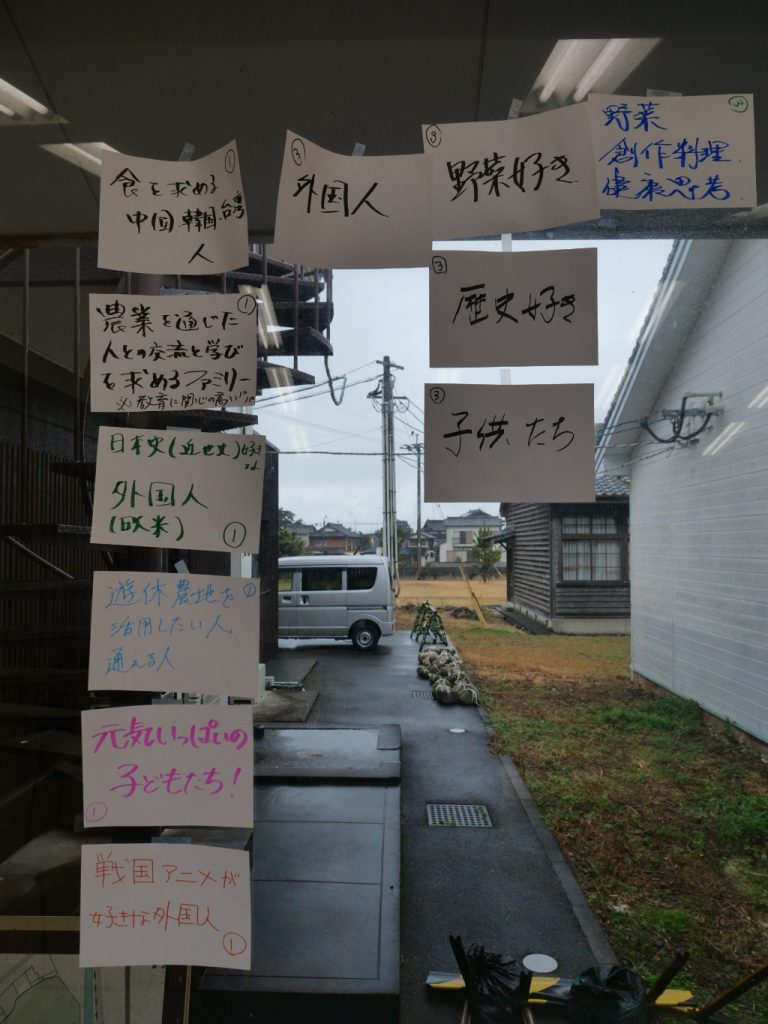 ①
食を求める
中国 韓国 台湾
人
①
農業を通じた
人との交流と学び
を求めるファミリー
※教育に関心の高い
日本史(近世史)好き
外国人
(欧米)
①
①
遊休農地を
活用したい人
通える人
元気いっぱいの
子どもたち!
①
戦国アニメが
好きな外国人
①
③
外国人
③
野菜好き
③
歴史好き
③
子供たち
③
野菜
創作料理
健康思考